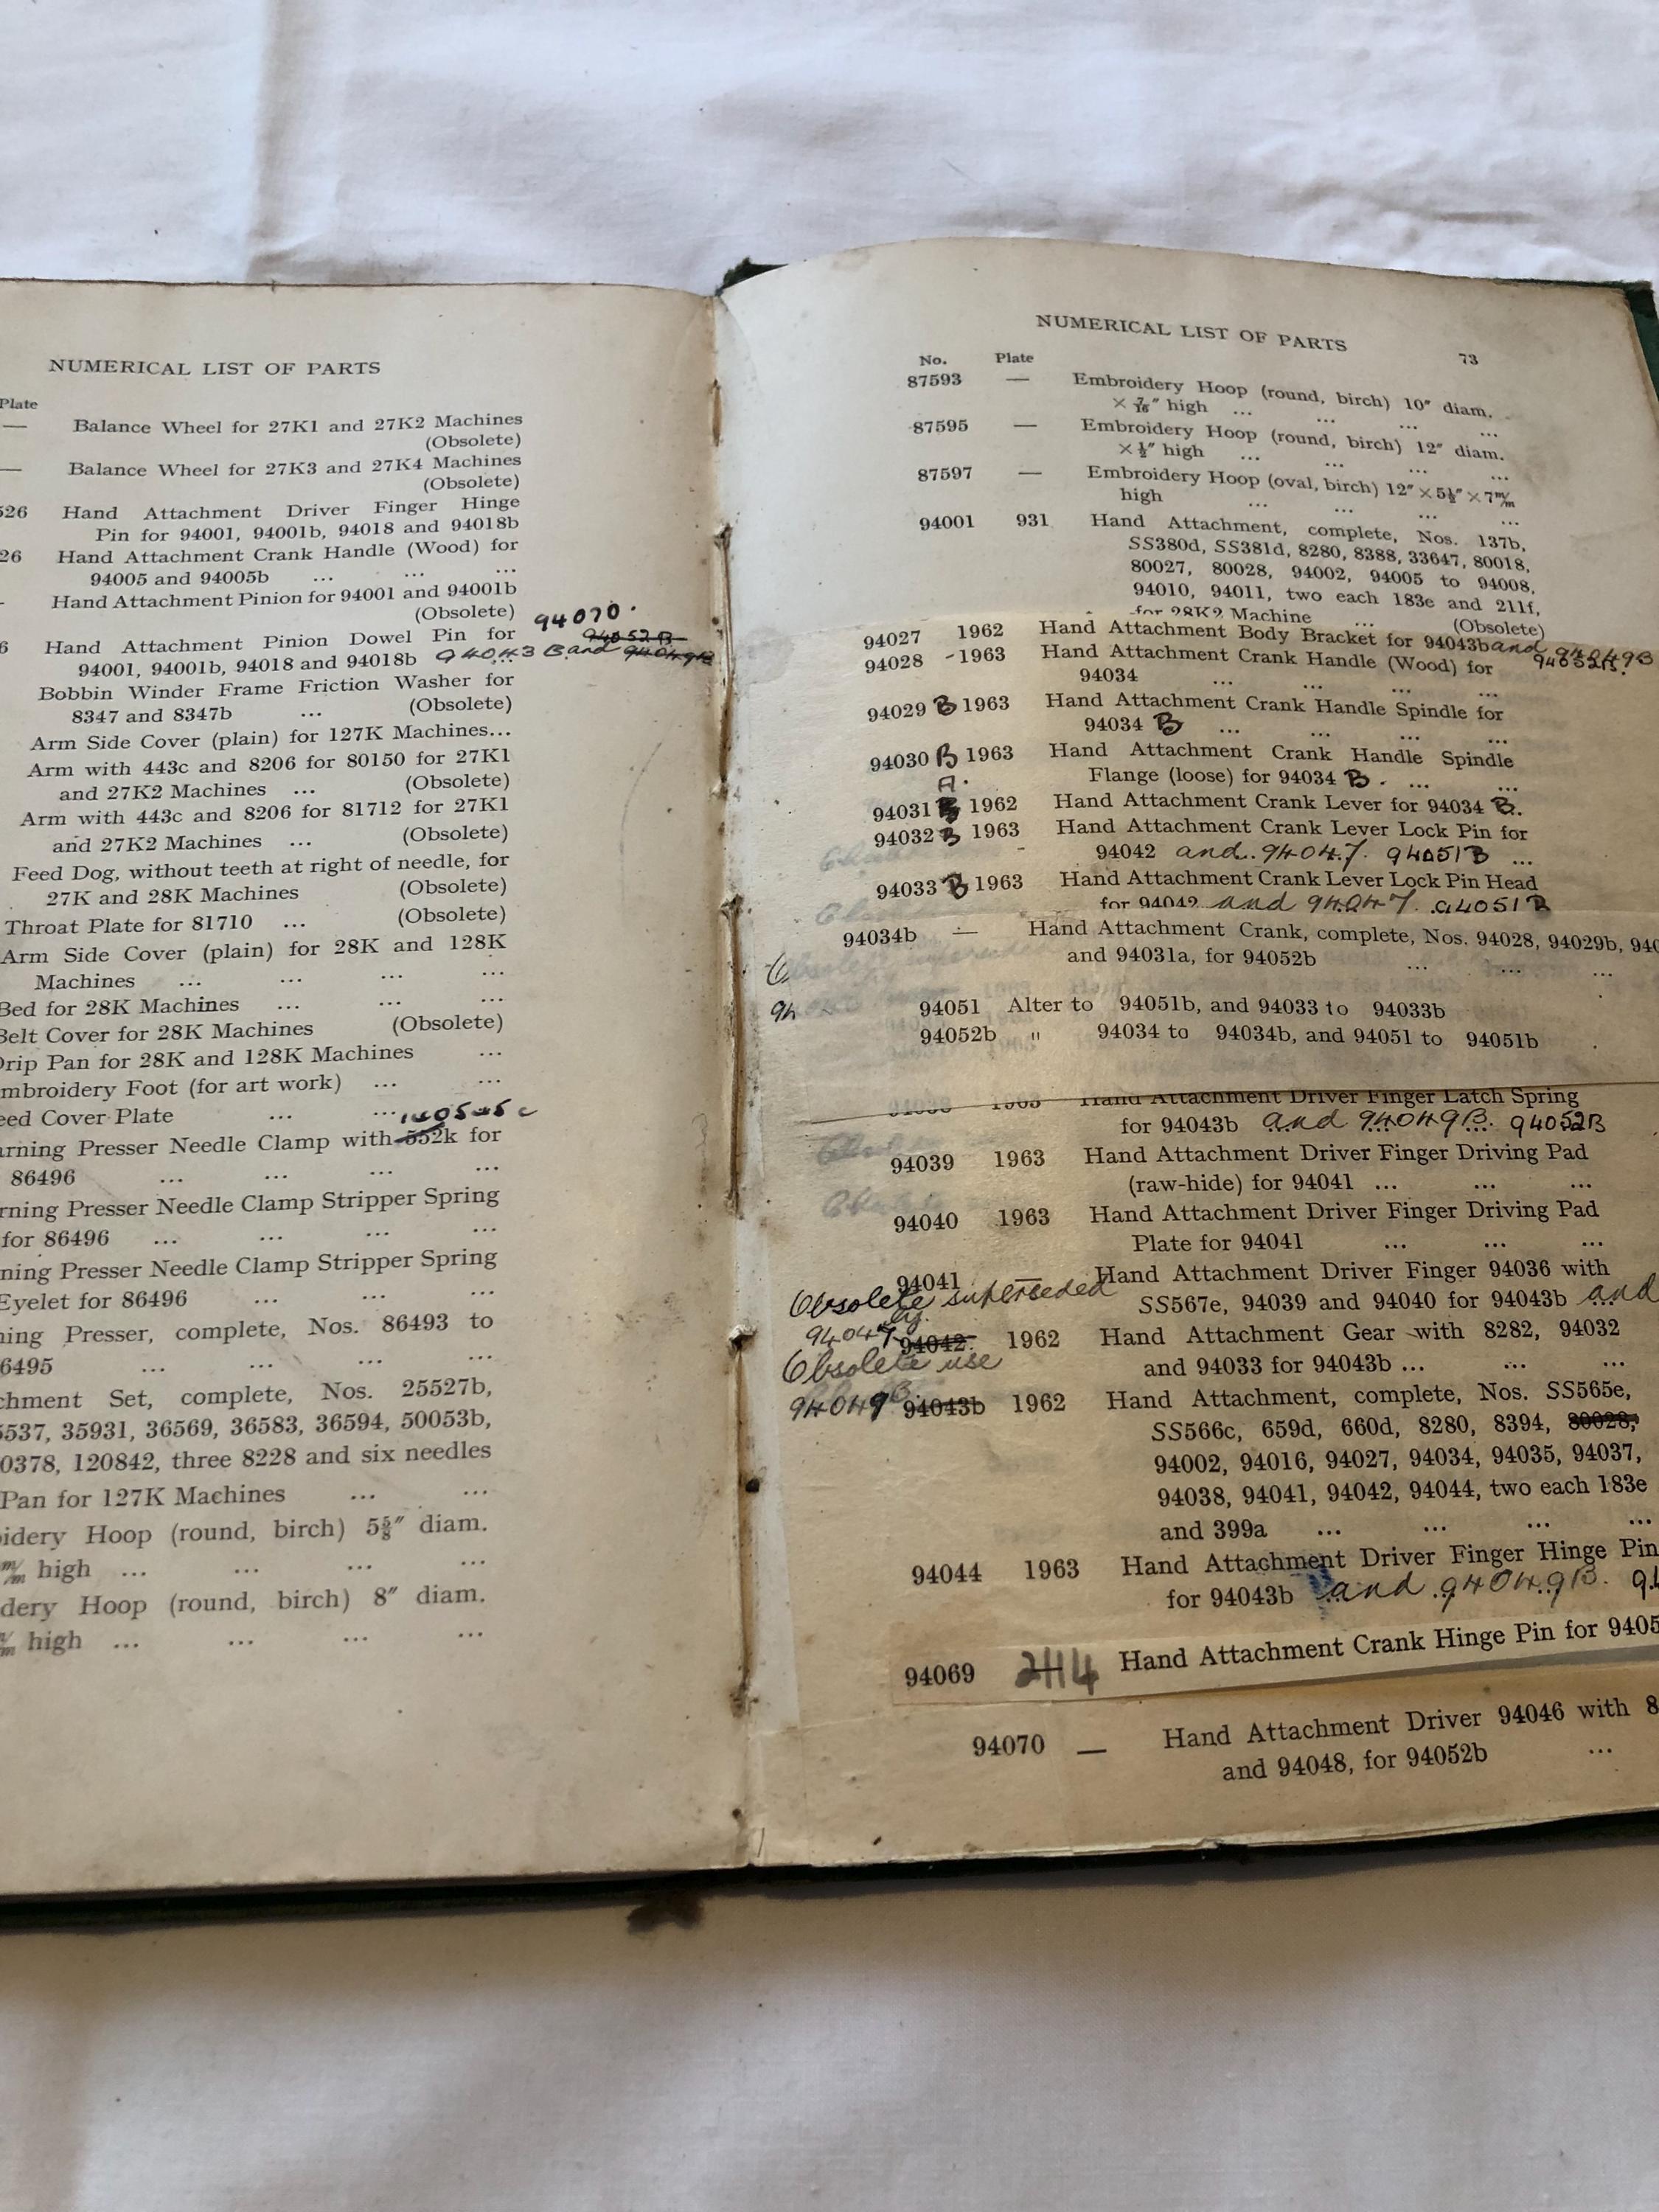 NUMERICAL LIST OF PARTS
Plate
— Balance Wheel for 27K1 and 27K2 Machines
(Obsolete)
— Balance Wheel for 27K3 and 27K4 Machines
(Obsolete)
526 Hand Attachment Driver Finger Hinge
Pin for 94001, 94001b, 94018 and 94018b
26 Hand Attachment Crank Handle (Wood) for
94005 and 94005b ... ... ...
- Hand Attachment Pinion for 94001 and 94001b
(Obsolete) 94070.
6 Hand Attachment Pinion Dowel Pin for 94052B
94001, 94001b, 94018 and 94018b 94043B and 94049B
Bobbin Winder Frame Friction Washer for
8347 and 8347b ... (Obsolete)
Arm Side Cover (plain) for 127K Machines...
Arm with 443c and 8206 for 80150 for 27K1
and 27K2 Machines ... (Obsolete)
Arm with 443c and 8206 for 81712 for 27K1
and 27K2 Machines ... (Obsolete)
Feed Dog, without teeth at right of needle, for
27K and 28K Machines (Obsolete)
Throat Plate for 81710 ... (Obsolete)
Arm Side Cover (plain) for 28K and 128K
Machines ... ... ...
Bed for 28K Machines ... ...
Belt Cover for 28K Machines (Obsolete)
Drip Pan for 28K and 128K Machines ...
mbroidery Foot (for art work) ... ...
eed Cover Plate ... ...
rning Presser Needle Clamp with 552k for
86496 ... ... ...
rning Presser Needle Clamp Stripper Spring
for 86496 ... ... ... ...
ning Presser Needle Clamp Stripper Spring
Eyelet for 86496 ... ... ...
ning Presser, complete, Nos. 86493 to
6495 ... ... ... ...
chment Set, complete, Nos. 25527b,
5537, 35931, 36569, 36583, 36594, 50053b,
0378, 120842, three 8228 and six needles
Pan for 127K Machines ... ...
idery Hoop (round, birch) 5⅝″ diam.
m/m high ... ... ... ...
dery Hoop (round, birch) 8″ diam.
m/m high ... ... ... ...
NUMERICAL LIST OF PARTS 73
No. Plate
87593 — Embroidery Hoop (round, birch) 10″ diam.
× 7/16″ high ... ... ... ...
87595 — Embroidery Hoop (round, birch) 12″ diam.
× ½″ high ... ... ... ...
87597 — Embroidery Hoop (oval, birch) 12″ × 5½″ × 7m/m
high ... ... ... ...
94001 931 Hand Attachment, complete, Nos. 137b,
SS380d, SS381d, 8280, 8388, 33647, 80018,
80027, 80028, 94002, 94005 to 94008,
94010, 94011, two each 183e and 211f,
for 28K2 Machine ... (Obsolete)
94027 1962 Hand Attachment Body Bracket for 94043b and 94049B
94052B.
94028 -1963 Hand Attachment Crank Handle (Wood) for
94034 ... ... ... ...
94029 B 1963 Hand Attachment Crank Handle Spindle for
94034 B ... ... ... ...
94030 B 1963 Hand Attachment Crank Handle Spindle
Flange (loose) for 94034 B. ... ...
A.
94031 B 1962 Hand Attachment Crank Lever for 94034 B.
94032 B 1963 Hand Attachment Crank Lever Lock Pin for
94042 and 94047. 94051B ...
94033 B 1963 Hand Attachment Crank Lever Lock Pin Head
for 94042 and 94047. 94051B
94034b — Hand Attachment Crank, complete, Nos. 94028, 94029b, 940
and 94031a, for 94052b ... ... ...
94051 Alter to 94051b, and 94033 to 94033b
94052b " 94034 to 94034b, and 94051 to 94051b
94038 1963 Hand Attachment Driver Finger Latch Spring
for 94043b and 94049B. 94052B
94039 1963 Hand Attachment Driver Finger Driving Pad
(raw-hide) for 94041 ... ... ...
94040 1963 Hand Attachment Driver Finger Driving Pad
Plate for 94041 ... ... ...
94041 — Hand Attachment Driver Finger 94036 with
Obsolete superseded SS567e, 94039 and 94040 for 94043b and
by.
94047 94042 1962 Hand Attachment Gear with 8282, 94032
Obsolete use and 94033 for 94043b ... ... ...
94049B 94043b 1962 Hand Attachment, complete, Nos. SS565e,
SS566c, 659d, 660d, 8280, 8394, 80028,
94002, 94016, 94027, 94034, 94035, 94037,
94038, 94041, 94042, 94044, two each 183e
and 399a ... ... ... ...
94044 1963 Hand Attachment Driver Finger Hinge Pin
for 94043b and 94049B. 94
94069 2114 Hand Attachment Crank Hinge Pin for 9405
94070 — Hand Attachment Driver 94046 with 8
and 94048, for 94052b ...